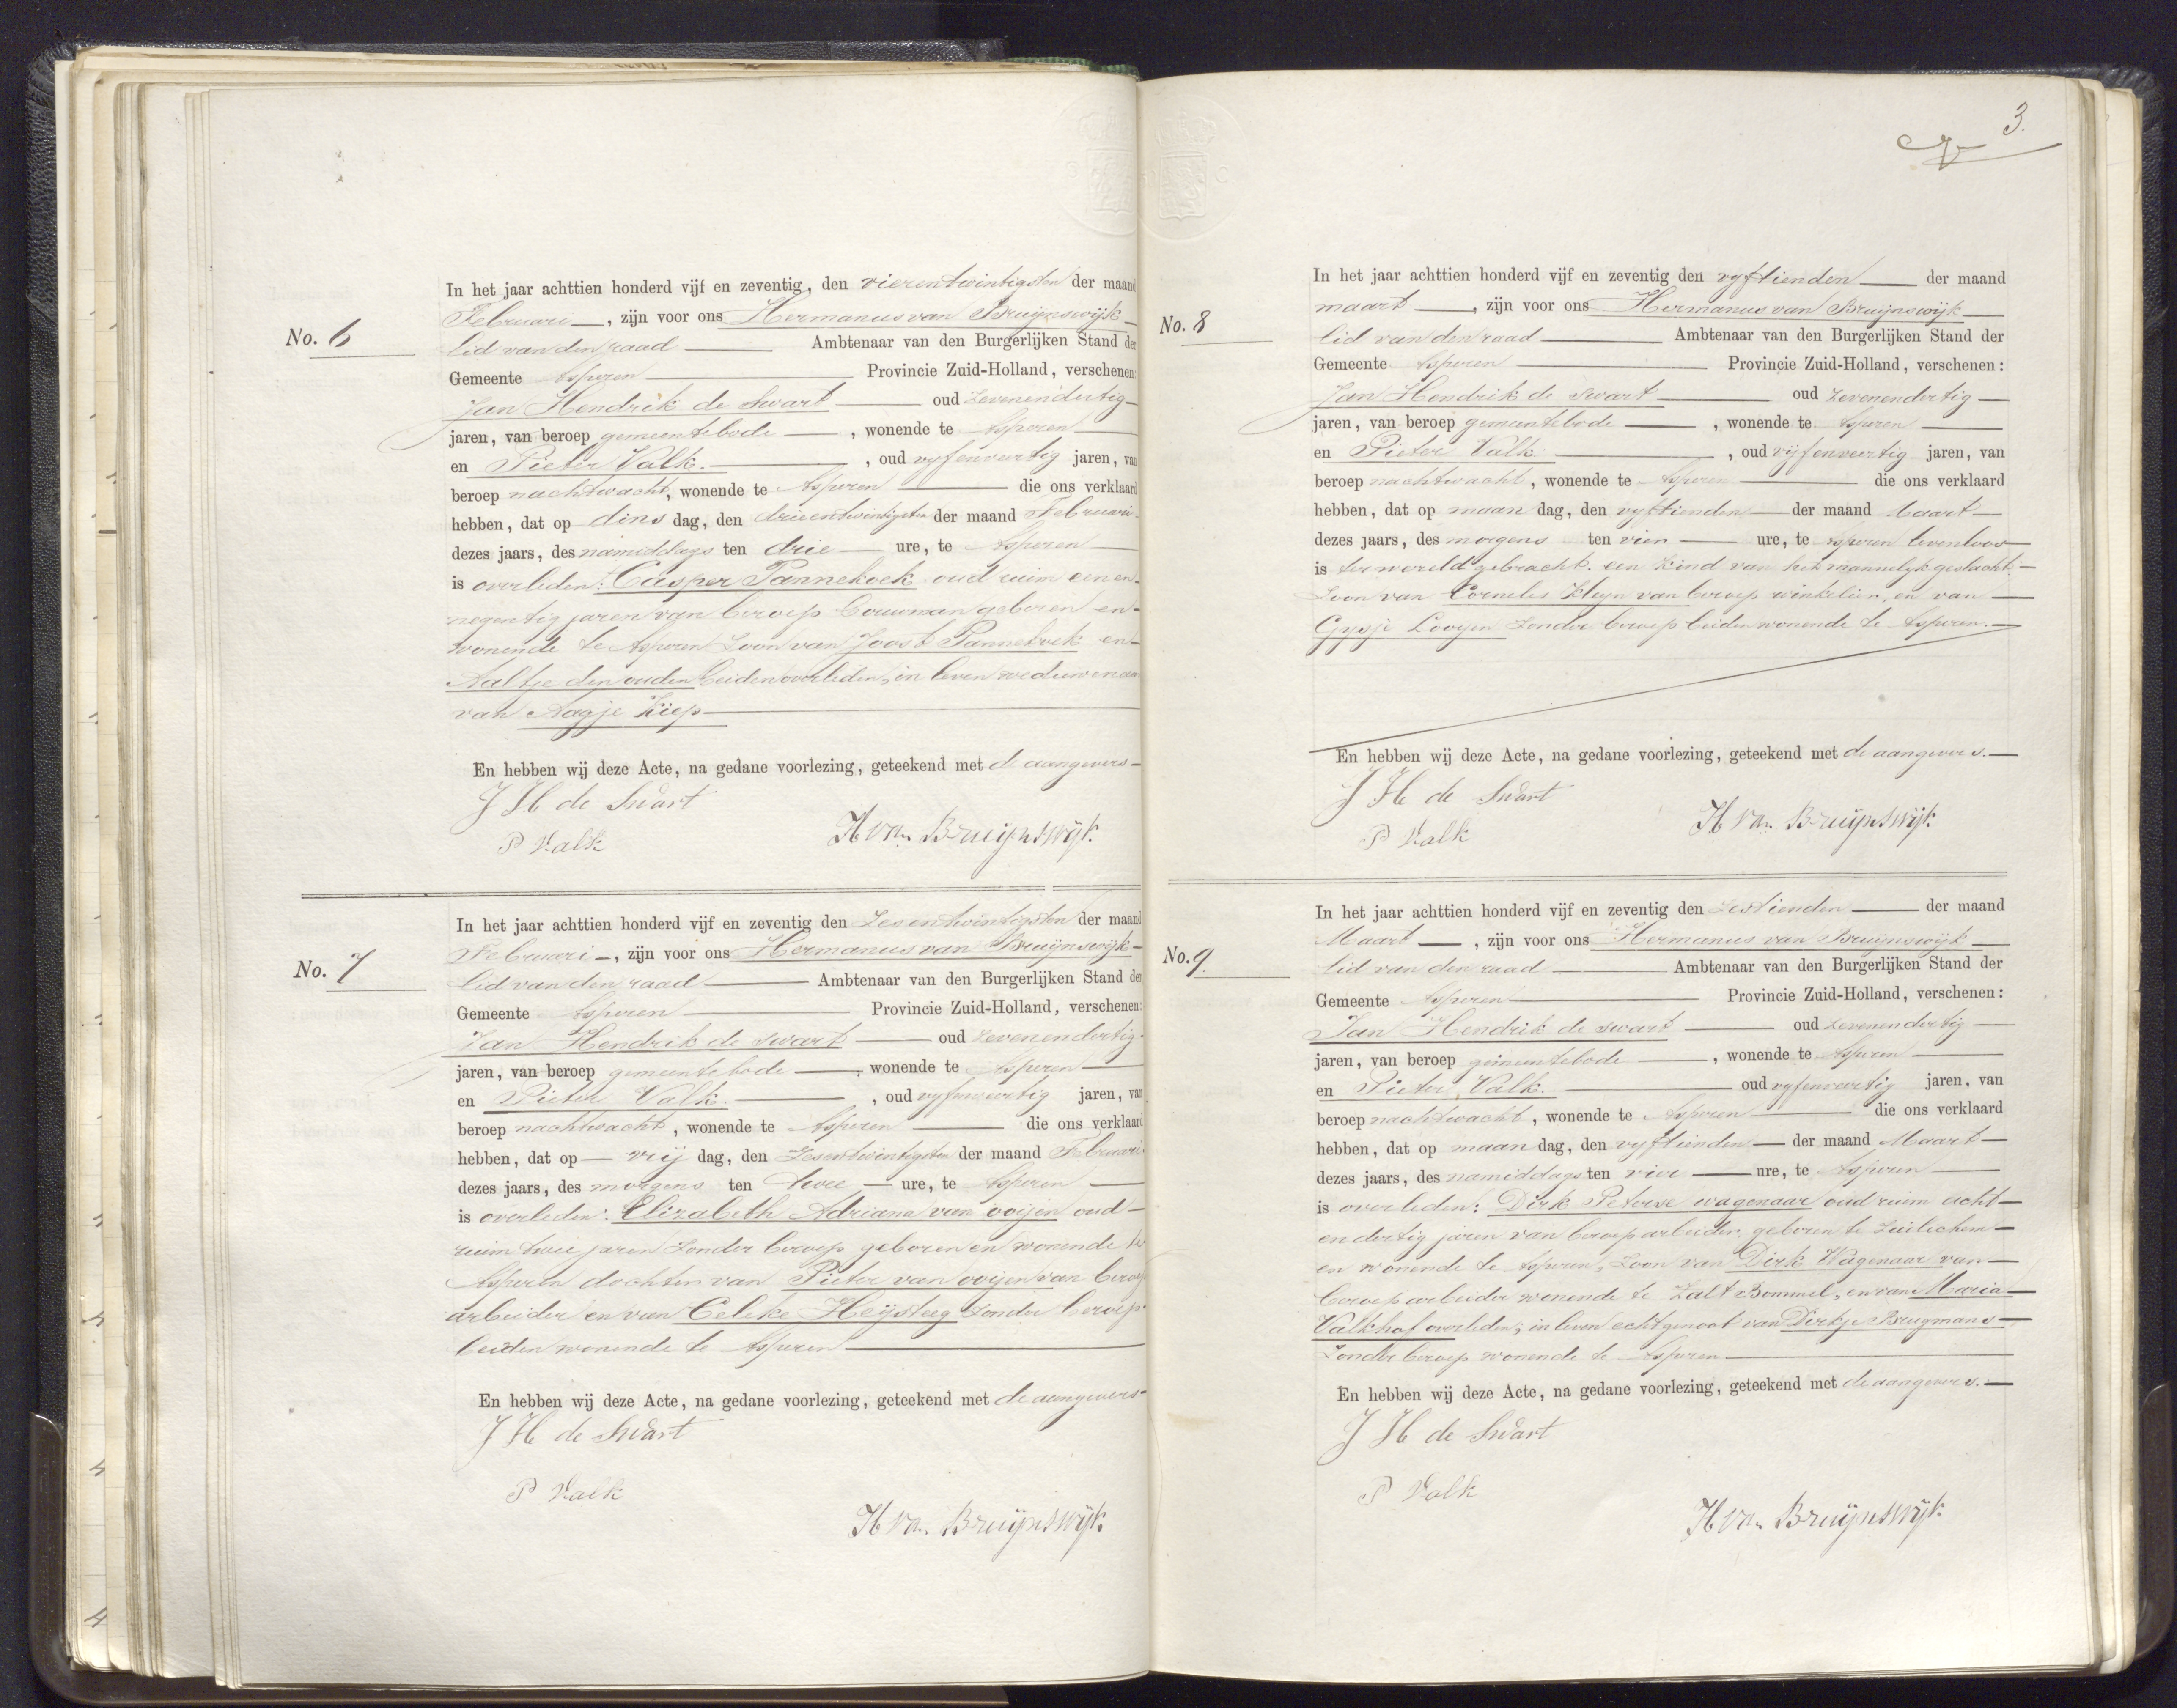 No. 6
In het jaar achttien honderd vijf en zeventig, den vierentwintigsten der maand
Februari, zijn voor ons Hermanus van Bruijnswijk
lid van den raad Ambtenaar van den Burgerlijken Stand der
Gemeente Asperen Provincie Zuid-Holland, verschenen:
Jan Hendrik de Swart oud Zevenendertig
jaren, van beroep gemeentebode, wonende te Asperen
en Pieter Valk., oud vyfenveertig jaren, van
beroep nachtwacht, wonende te Asperen die ons verklaard
hebben, dat op dins dag, den drieentwintigsten der maand Februari
dezes jaars, des namiddags ten drie ure, te Asperen
is overleden: Casper Pannekoek oud ruim een en
negentig jaren van beroep bouwman geboren en
wonende te Asperen Zoon van Joost Pannekoek en
Aaltje den ouden beiden overleden, in leven weduwenaar
van Aagje Kiep
En hebben wij deze Acte, na gedane voorlezing, geteekend met de aangevers
J H de Swart
P Valk
H van Bruijnswijk
No. 7
In het jaar achttien honderd vijf en zeventig den Zesentwintigsten der maand
Februari, zijn voor ons Hermanus van Bruijnswijk
lid van den raad Ambtenaar van den Burgerlijken Stand der
Gemeente Asperen Provincie Zuid-Holland, verschenen:
Jan Hendrik de Swart oud Zevenendertig
jaren, van beroep gemeentebode, wonende te Asperen
en Pieter Valk., oud vyfenveertig jaren, van
beroep nachtwacht, wonende te Asperen die ons verklaard
hebben, dat op vrij dag, den Zesentwintigsten der maand Februari
dezes jaars, des morgens ten twee ure, te Asperen
is overleden: Elizabeth Adriana van ooijen oud
ruim twee jaren Zonder beroep geboren en wonende te
Asperen dochter van Pieter van ooijen van beroep
arbeider en van Celeke Heijsteeg Zonder beroep
beiden wonende te Asperen
En hebben wij deze Acte, na gedane voorlezing, geteekend met de aangevers
J H de Swart
P Valk
H van Bruijnswijk
3.
No. 8
In het jaar achttien honderd vijf en zeventig den vyftienden der maand
maart, zijn voor ons Hermanus van Bruijnswijk
lid van den raad Ambtenaar van den Burgerlijken Stand der
Gemeente Asperen Provincie Zuid-Holland, verschenen:
Jan Hendrik de Swart oud Zevenendertig
jaren, van beroep gemeentebode, wonende te Asperen
en Pieter Valk, oud vijfenveertig jaren, van
beroep nachtwacht, wonende te Asperen die ons verklaard
hebben, dat op maan dag, den vyftienden der maand Maart
dezes jaars, des morgens ten vier ure, te Asperen levenloos
is ter wereld gebracht. een kind van het mannelyk geslacht,
Zoon van Cornelis Kleyn van beroep winkelier, en van
Gysje Looyen Zonder beroep beiden wonende te Asperen.
En hebben wij deze Acte, na gedane voorlezing, geteekend met de aangevers.
J H de Swart
P Valk
H van Bruijnswijk
No. 9.
In het jaar achttien honderd vijf en zeventig den Zestienden der maand
Maart, zijn voor ons Hermanus van Bruijnswijk
lid van den raad Ambtenaar van den Burgerlijken Stand der
Gemeente Asperen Provincie Zuid-Holland, verschenen:
Jan Hendrik de Swart oud Zevenendertig
jaren, van beroep gemeentebode, wonende te Asperen
en Pieter Valk. oud vyfenveertig jaren, van
beroep nachtwacht, wonende te Asperen die ons verklaard
hebben, dat op maan dag, den vyftienden der maand Maart
dezes jaars, des namiddags ten vier ure, te Asperen
is overleden: Dirk Peterse wagenaar oud ruim acht
en dertig jaren van beroep arbeider, geboren te Zuilichem
en wonende te Asperen, Zoon van Dirk Wagenaar van
beroep arbeider wonende te Zalt Bommel, en van Maria
Valkhof overleden, in leven echtgenoot van Dirkje Brugmans
Zonder beroep wonende te Asperen
En hebben wij deze Acte, na gedane voorlezing, geteekend met de aangevers.
J H de Swart
P Valk
H van Bruijnswijk